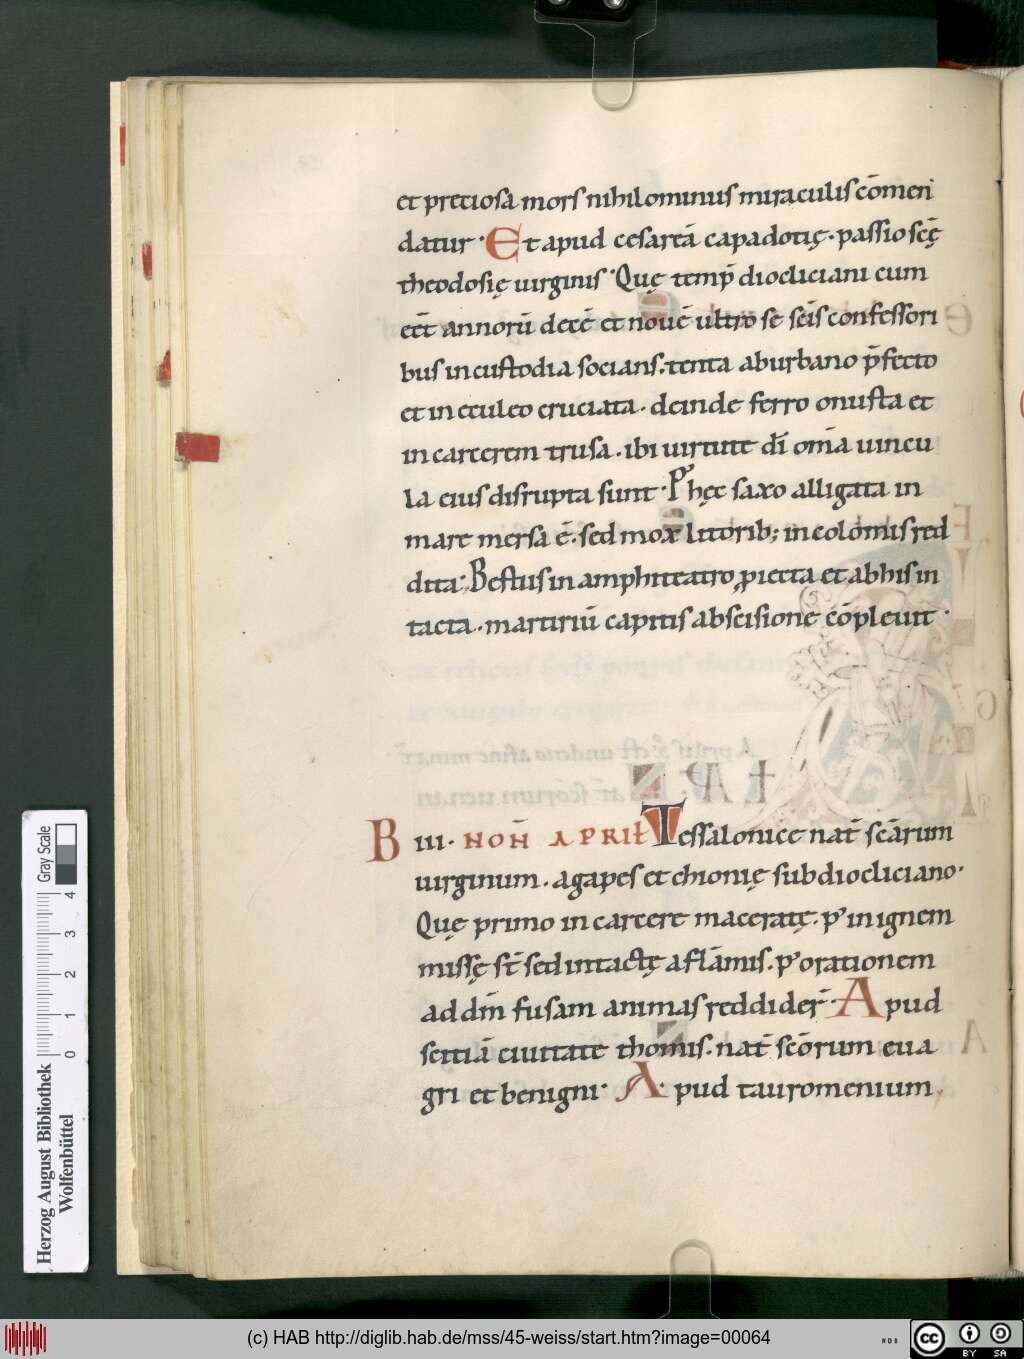 et preciosa mors nihilominus miraculis cōmen
datur · Et apud cesareā capadotię · passio scę̄
theodosię uirginis · Quę temꝑ diocliciani cum
eēt annorū decē et nouē ultro se scīs confessori
bus in custodia socians · tenta ab urbano p̄fecto
et in eculeo cruciata · deinde ferro onusta et
in carcerem trusa · ibi uirtute dī om̄ia uincu
la eius disrupta sunt · P' hęc saxo alligata in
mare mersa ē · sed mox litorib; in colomis red
dita · Bestiis in amphiteatro ꝓiecta et ab his in
tacta · martiriū capitis abscisione cōpleuit ·
B III · NON̄ APRIŁ Tessalonice nat̄ scārum
uirginum · agapes et chionię sub diocliciano ·
Quę primo in carcere maceratę · p' in ignem
missę st̄ sed intactę a flāmis · p' orationem
ad dm̄ fusam animas reddider̄ · Apud
scitiā ciuitate thomis · nat̄ scōrum eua
gri et benigni · Apud tauromenium
Herzog August Bibliothek
Wolfenbüttel
0 1 2 3 4
Gray Scale
(c) HAB http://diglib.hab.de/mss/45-weiss/start.htm?image=00064
WDB
cc
BY SA